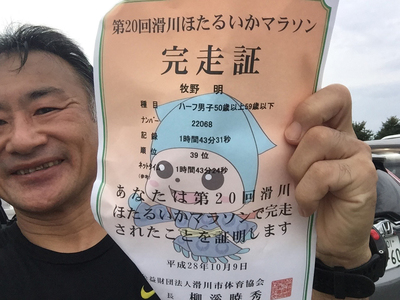 第20回滑川ほたるいかマラソン
完走証
牧野 明
種目 ハーフ男子50歳以上59歳以下
ナンバー 22068
記録 1時間43分31秒
順位 39位
ネットタイム 1時間43分24秒
あなたは第20回滑川
ほたるいかマラソンで完走
されたことを証明します
平成28年10月9日
益財団法人滑川市体育協会
長 柳溪暁秀